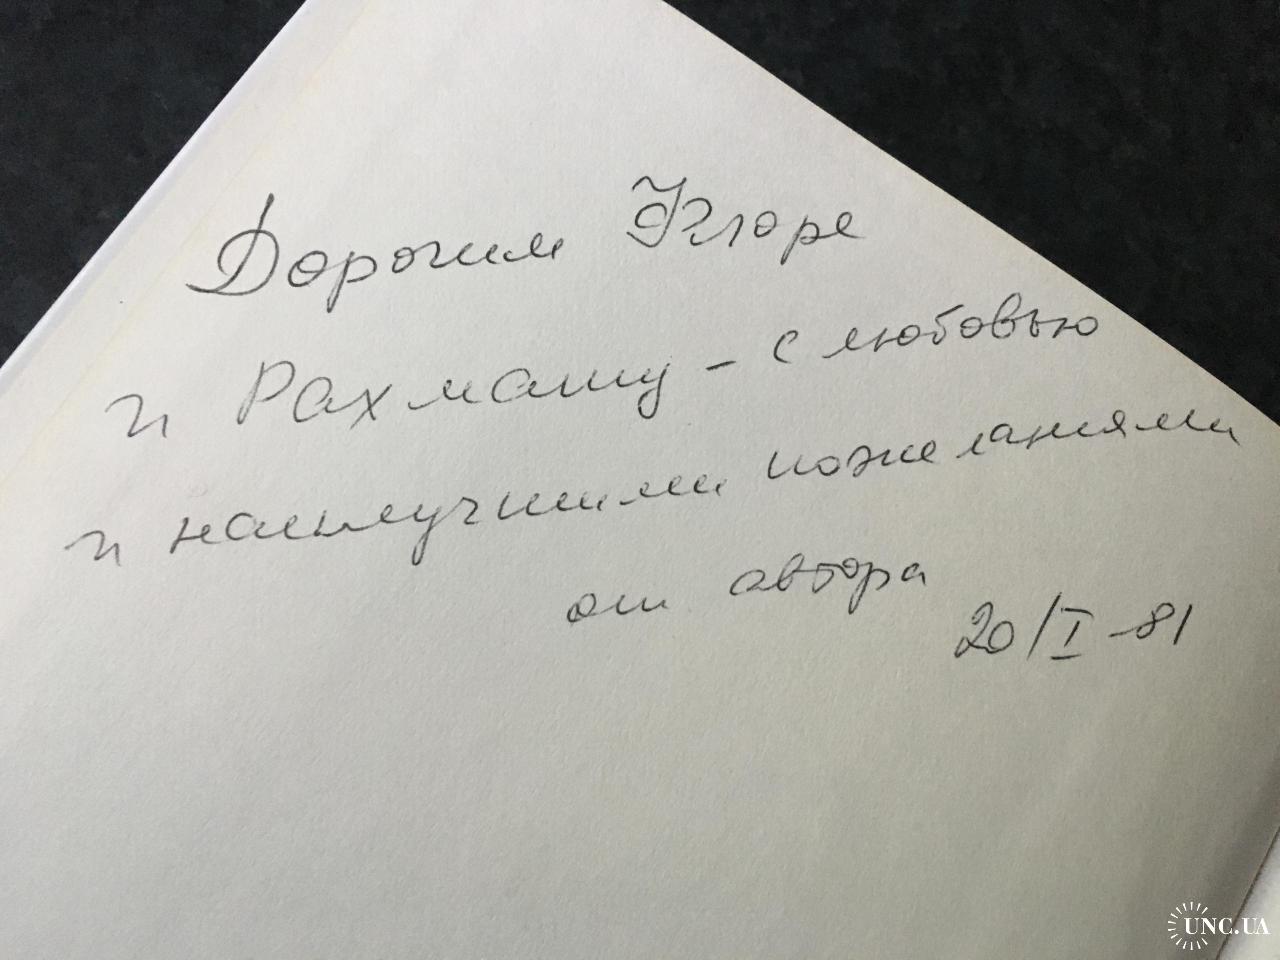 Дорогим
и
- с любовью
и наилучшими пожеланиями
от автора
20/I-81
UNC.UA